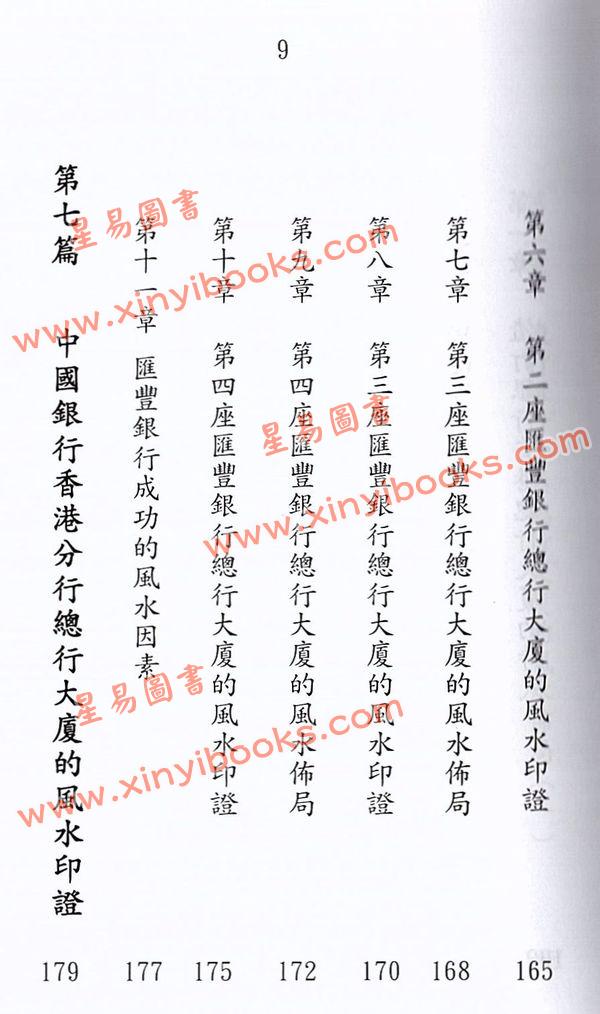 9
第六章 第二座匯豐銀行總行大廈的風水印證 165
第七章 第三座匯豐銀行總行大廈的風水佈局 168
第八章 第三座匯豐銀行總行大廈的風水印證 170
第九章 第四座匯豐銀行總行大廈的風水佈局 172
第十章 第四座匯豐銀行總行大廈的風水印證 175
第十一章 匯豐銀行成功的風水因素 177
第七篇 中國銀行香港分行總行大廈的風水印證 179
星易圖書
www.xinyibooks.com
星易圖書
www.xinyibooks.com
星易圖書
www.xinyibooks.com